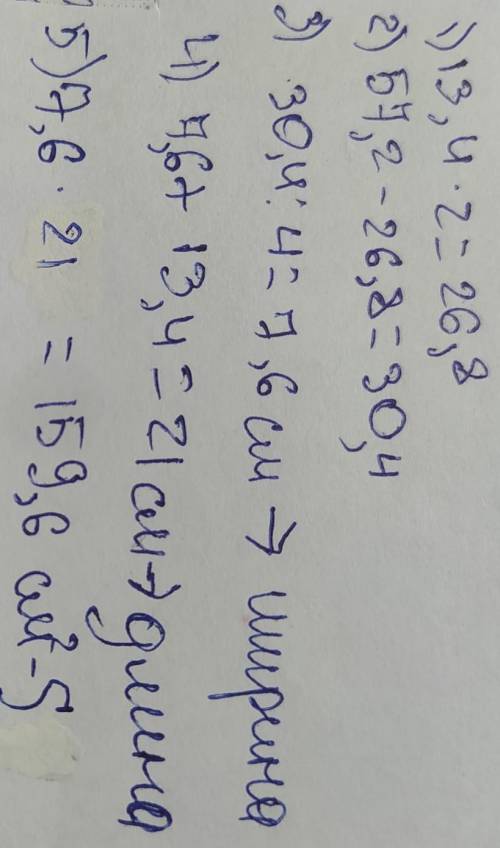 1) 13,4 · 2 = 26,8
2) 57,2 - 26,8 = 30,4
3) 30,4 : 4 = 7,6 см → ширина
4) 7,6 + 13,4 = 21 см → длина
5) 7,6 · 21 = 159,6 см² - S